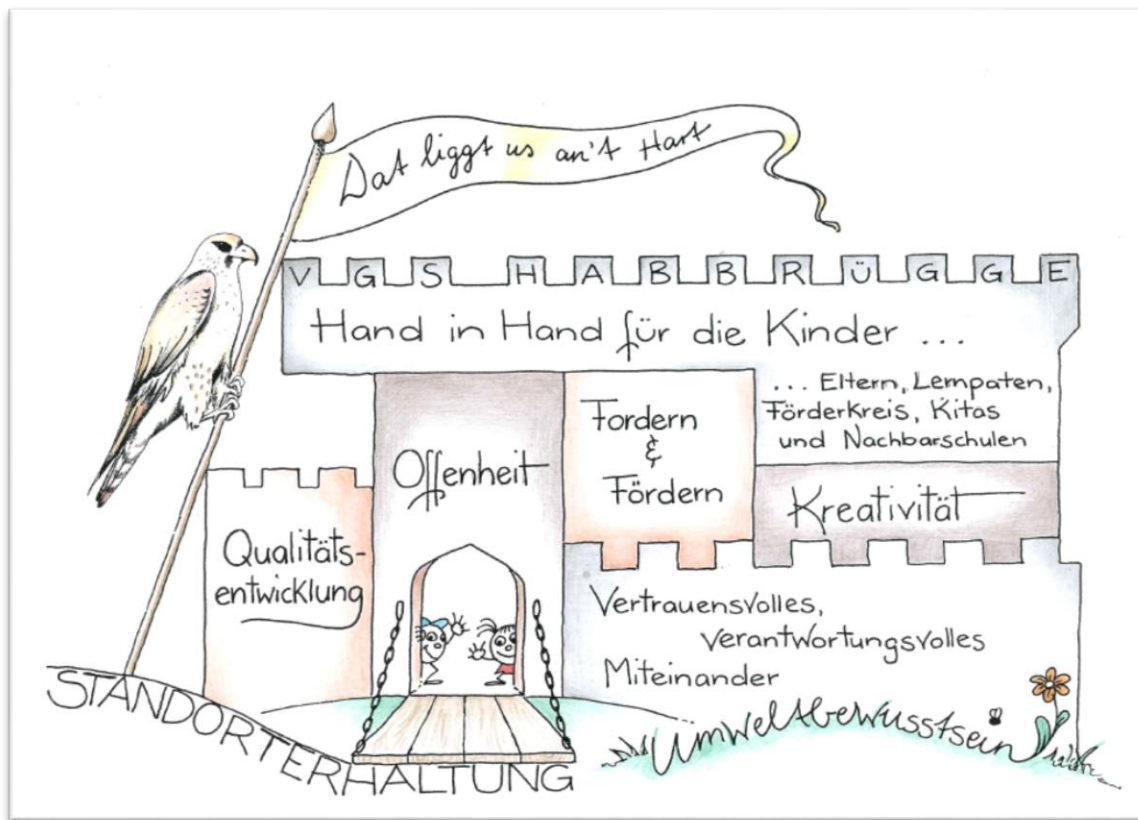 Dat liggt us an't Hart
VGS HABBRÜGGE
Hand in Hand für die Kinder ...
... Eltern, Lernpaten,
Förderkreis, Kitas
und Nachbarschulen
Fordern
&
Fördern
Offenheit
Kreativität
Qualitäts-
entwicklung
Vertrauensvolles,
verantwortungsvolles
Miteinander
Umweltbewusstsein
STANDORTERHALTUNG